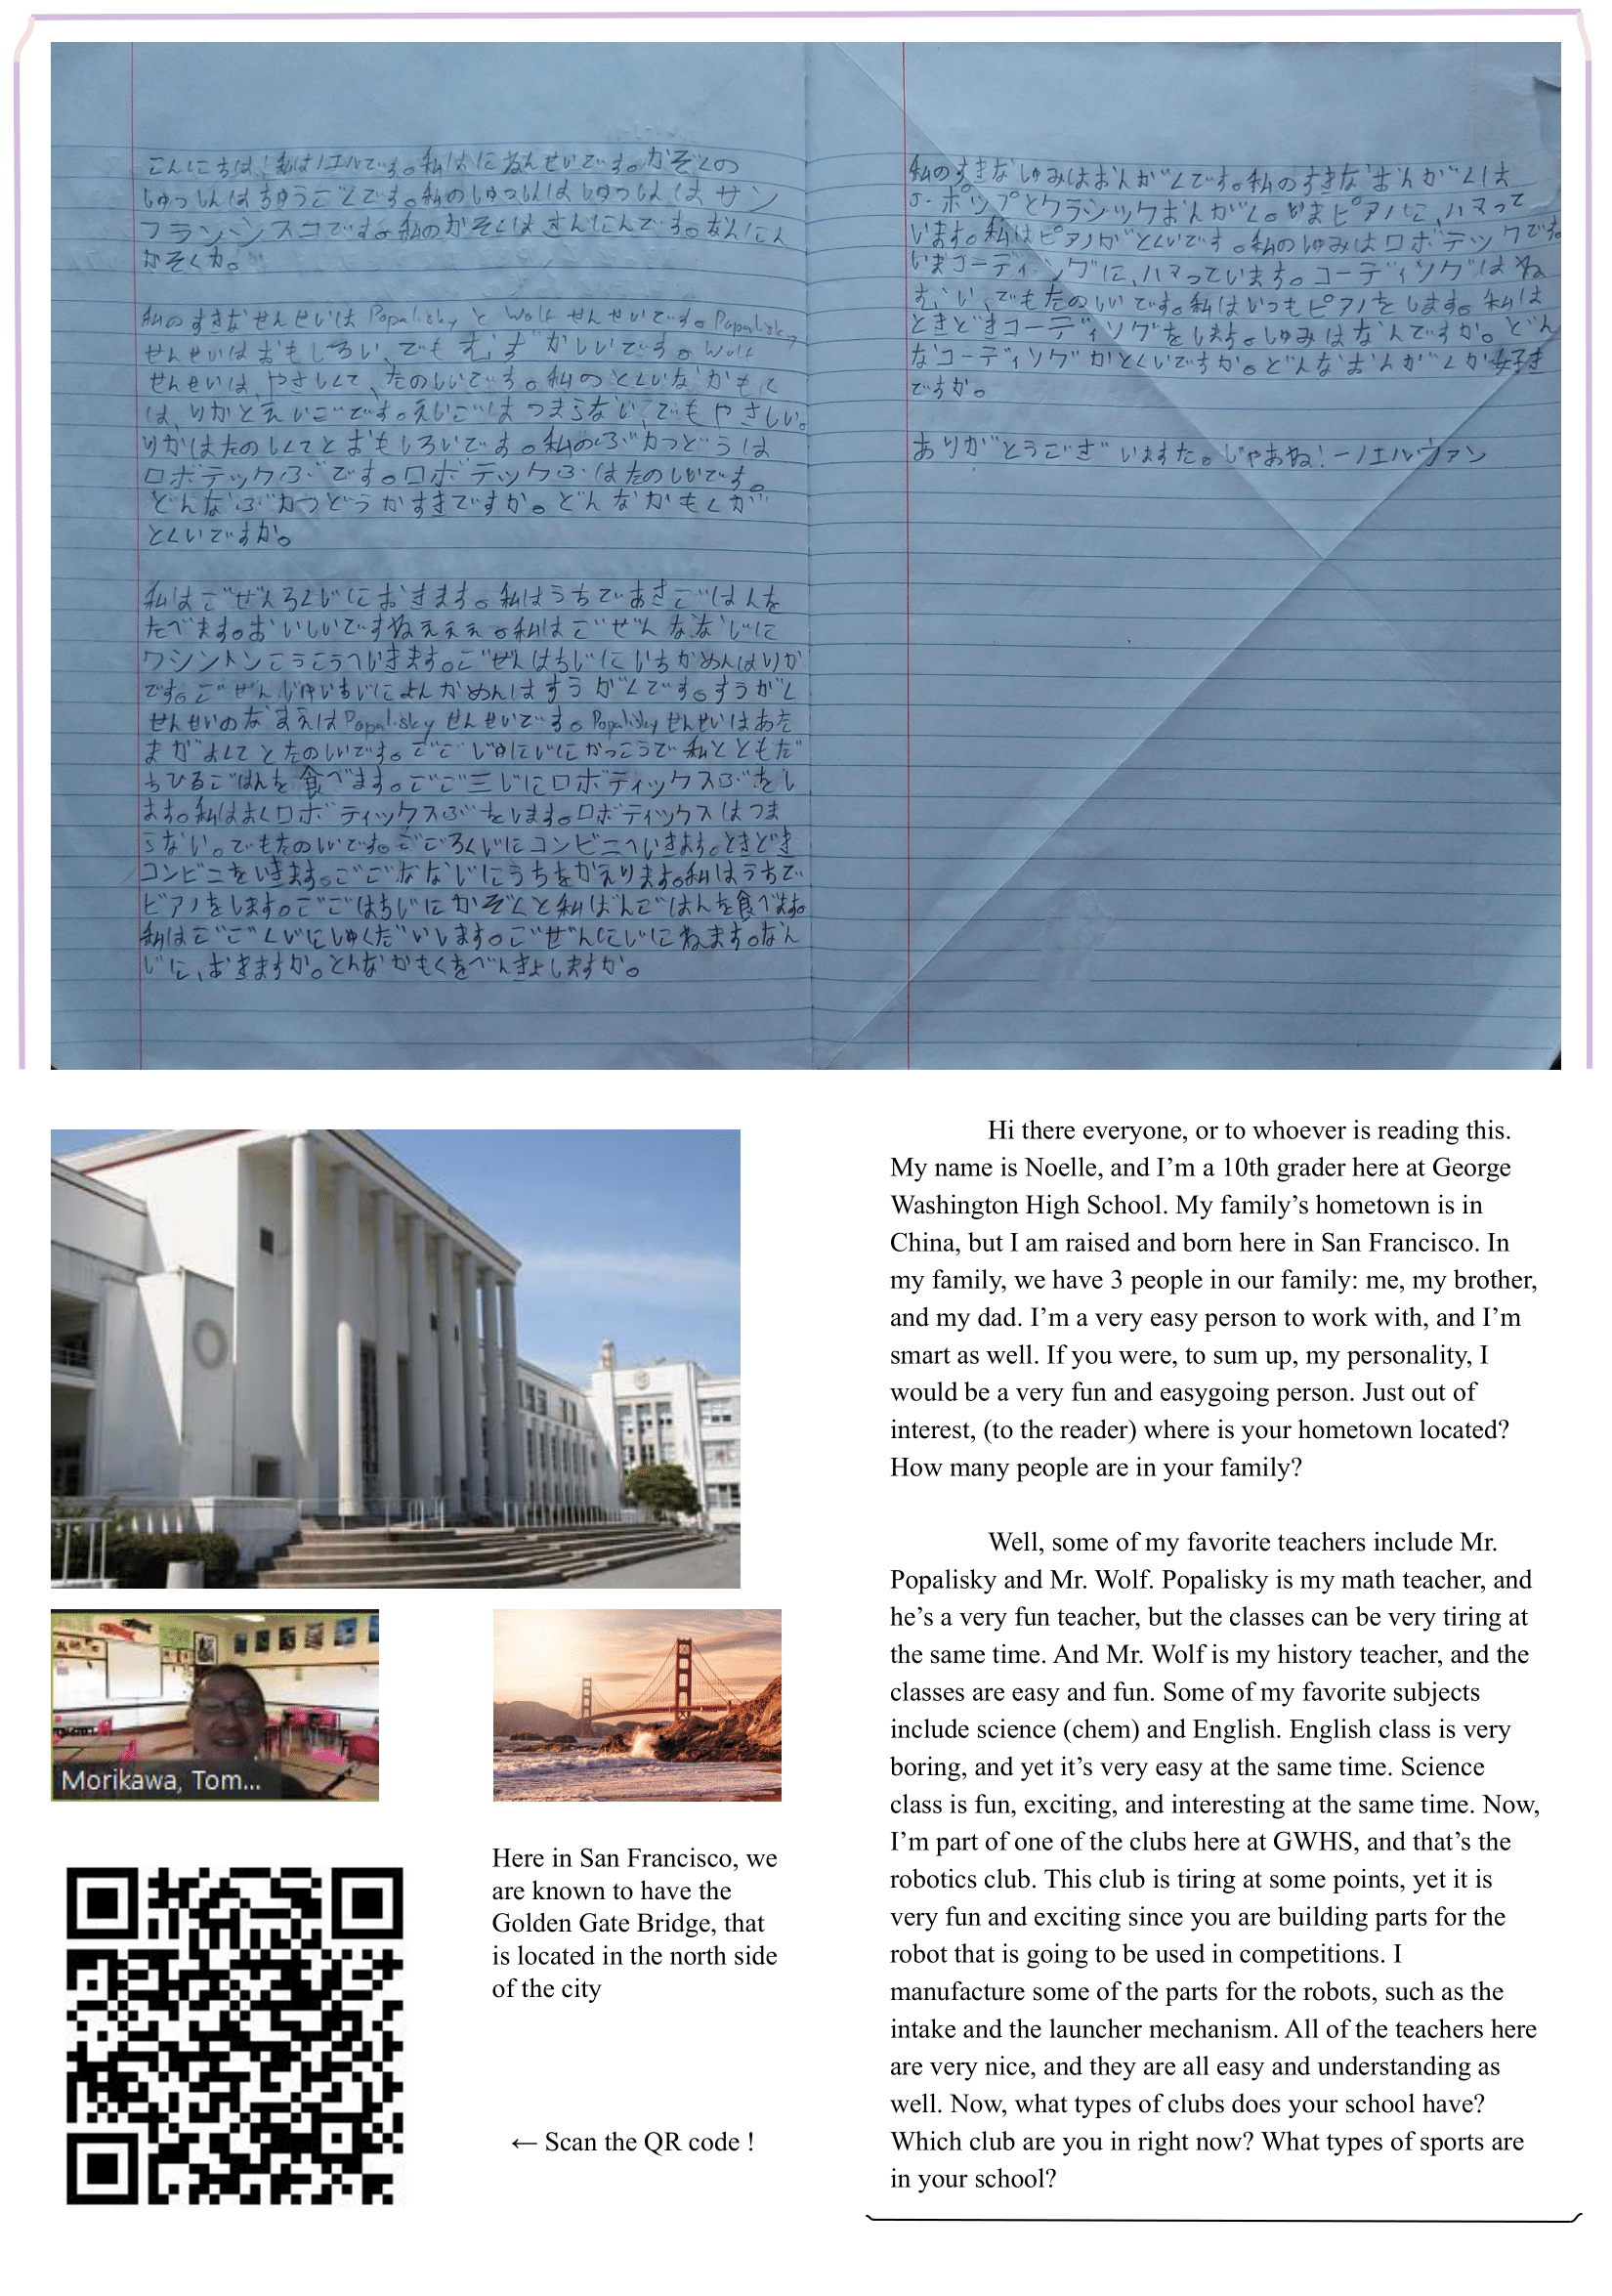 こんにちは！私はノエルです。私はにねんせいです。かぞくの
しゅっしんはちゅうごくです。私のしゅっしんはしゅっしんはサン
フランシスコです。私のかぞくはさんにんです。なんにん
かぞくか。
私のすきなせんせいはPopaliskyとWolfせんせいです。Popalisky
せんせいはおもしろい、でもむずかしいです。Wolf
せんせいは、やさしくて、たのしいです。私のとくいなかもく
は、りかとえいごです。えいごはつまらない、でもやさしい。
りかはたのしくてとおもしろいです。私のぶかつどうは
ロボテックぶです。ロボテックぶはたのしいです。
どんなぶかつどうかすきですか。どんなかもくが
とくいですか。
私はごぜんろくじにおきます。私はうちであさごはんを
たべます。おいしいですねえええ。私はごぜんななじに
ワシントンこうこうへいきます。ごぜんはちじにいちかめんはりか
です。ごぜんじゅいちじによんかめんはすうがくです。すうがく
せんせいのなまえはPopaliskyせんせいです。Popaliskyせんせいはあた
まがよくてとたのしいです。ごごじゅにじにがっこうで私とともだ
ちひるごはんを食べます。ごご三じにロボティックスぶをし
ます。私はよくロボティックスぶをします。ロボティックスはつま
らない。でもたのしいです。ごごろくじにコンビニへいきます。ときどき
コンビニをいきます。ごごななじにうちをかえります。私はうちで
ピアノをします。ごごはちじにかぞくと私ばんごはんを食べます。
私はごごくじにしゅくだいします。ごぜんにじにねます。なん
じに、おきますか。どんなかもくをべんきょしますか。
私のすきなしゅみはおんがくです。私のすきなおんがくは
ポップとクラシックおんがく。いまピアノに、ハマって
います。私はピアノがとくいです。私のしゅみはロボテックです。
いまコーディングに、ハマっています。コーディングはね
むい、でもたのしいです。私はいつもピアノをします。私は
ときどきコーディングをします。しゅみはなんですか。どん
なコーディングがとくいですか。どんなおんがくが好き
ですか。
ありがとうございますた。じゃあね！ーノエルヴァン
Hi there everyone, or to whoever is reading this.
My name is Noelle, and I’m a 10th grader here at George
Washington High School. My family’s hometown is in
China, but I am raised and born here in San Francisco. In
my family, we have 3 people in our family: me, my brother,
and my dad. I’m a very easy person to work with, and I’m
smart as well. If you were, to sum up, my personality, I
would be a very fun and easygoing person. Just out of
interest, (to the reader) where is your hometown located?
How many people are in your family?
Well, some of my favorite teachers include Mr.
Popalisky and Mr. Wolf. Popalisky is my math teacher, and
he’s a very fun teacher, but the classes can be very tiring at
the same time. And Mr. Wolf is my history teacher, and the
classes are easy and fun. Some of my favorite subjects
include science (chem) and English. English class is very
boring, and yet it’s very easy at the same time. Science
class is fun, exciting, and interesting at the same time. Now,
I’m part of one of the clubs here at GWHS, and that’s the
robotics club. This club is tiring at some points, yet it is
very fun and exciting since you are building parts for the
robot that is going to be used in competitions. I
manufacture some of the parts for the robots, such as the
intake and the launcher mechanism. All of the teachers here
are very nice, and they are all easy and understanding as
well. Now, what types of clubs does your school have?
Which club are you in right now? What types of sports are
in your school?
Morikawa, Tom...
Here in San Francisco, we
are known to have the
Golden Gate Bridge, that
is located in the north side
of the city
← Scan the QR code !